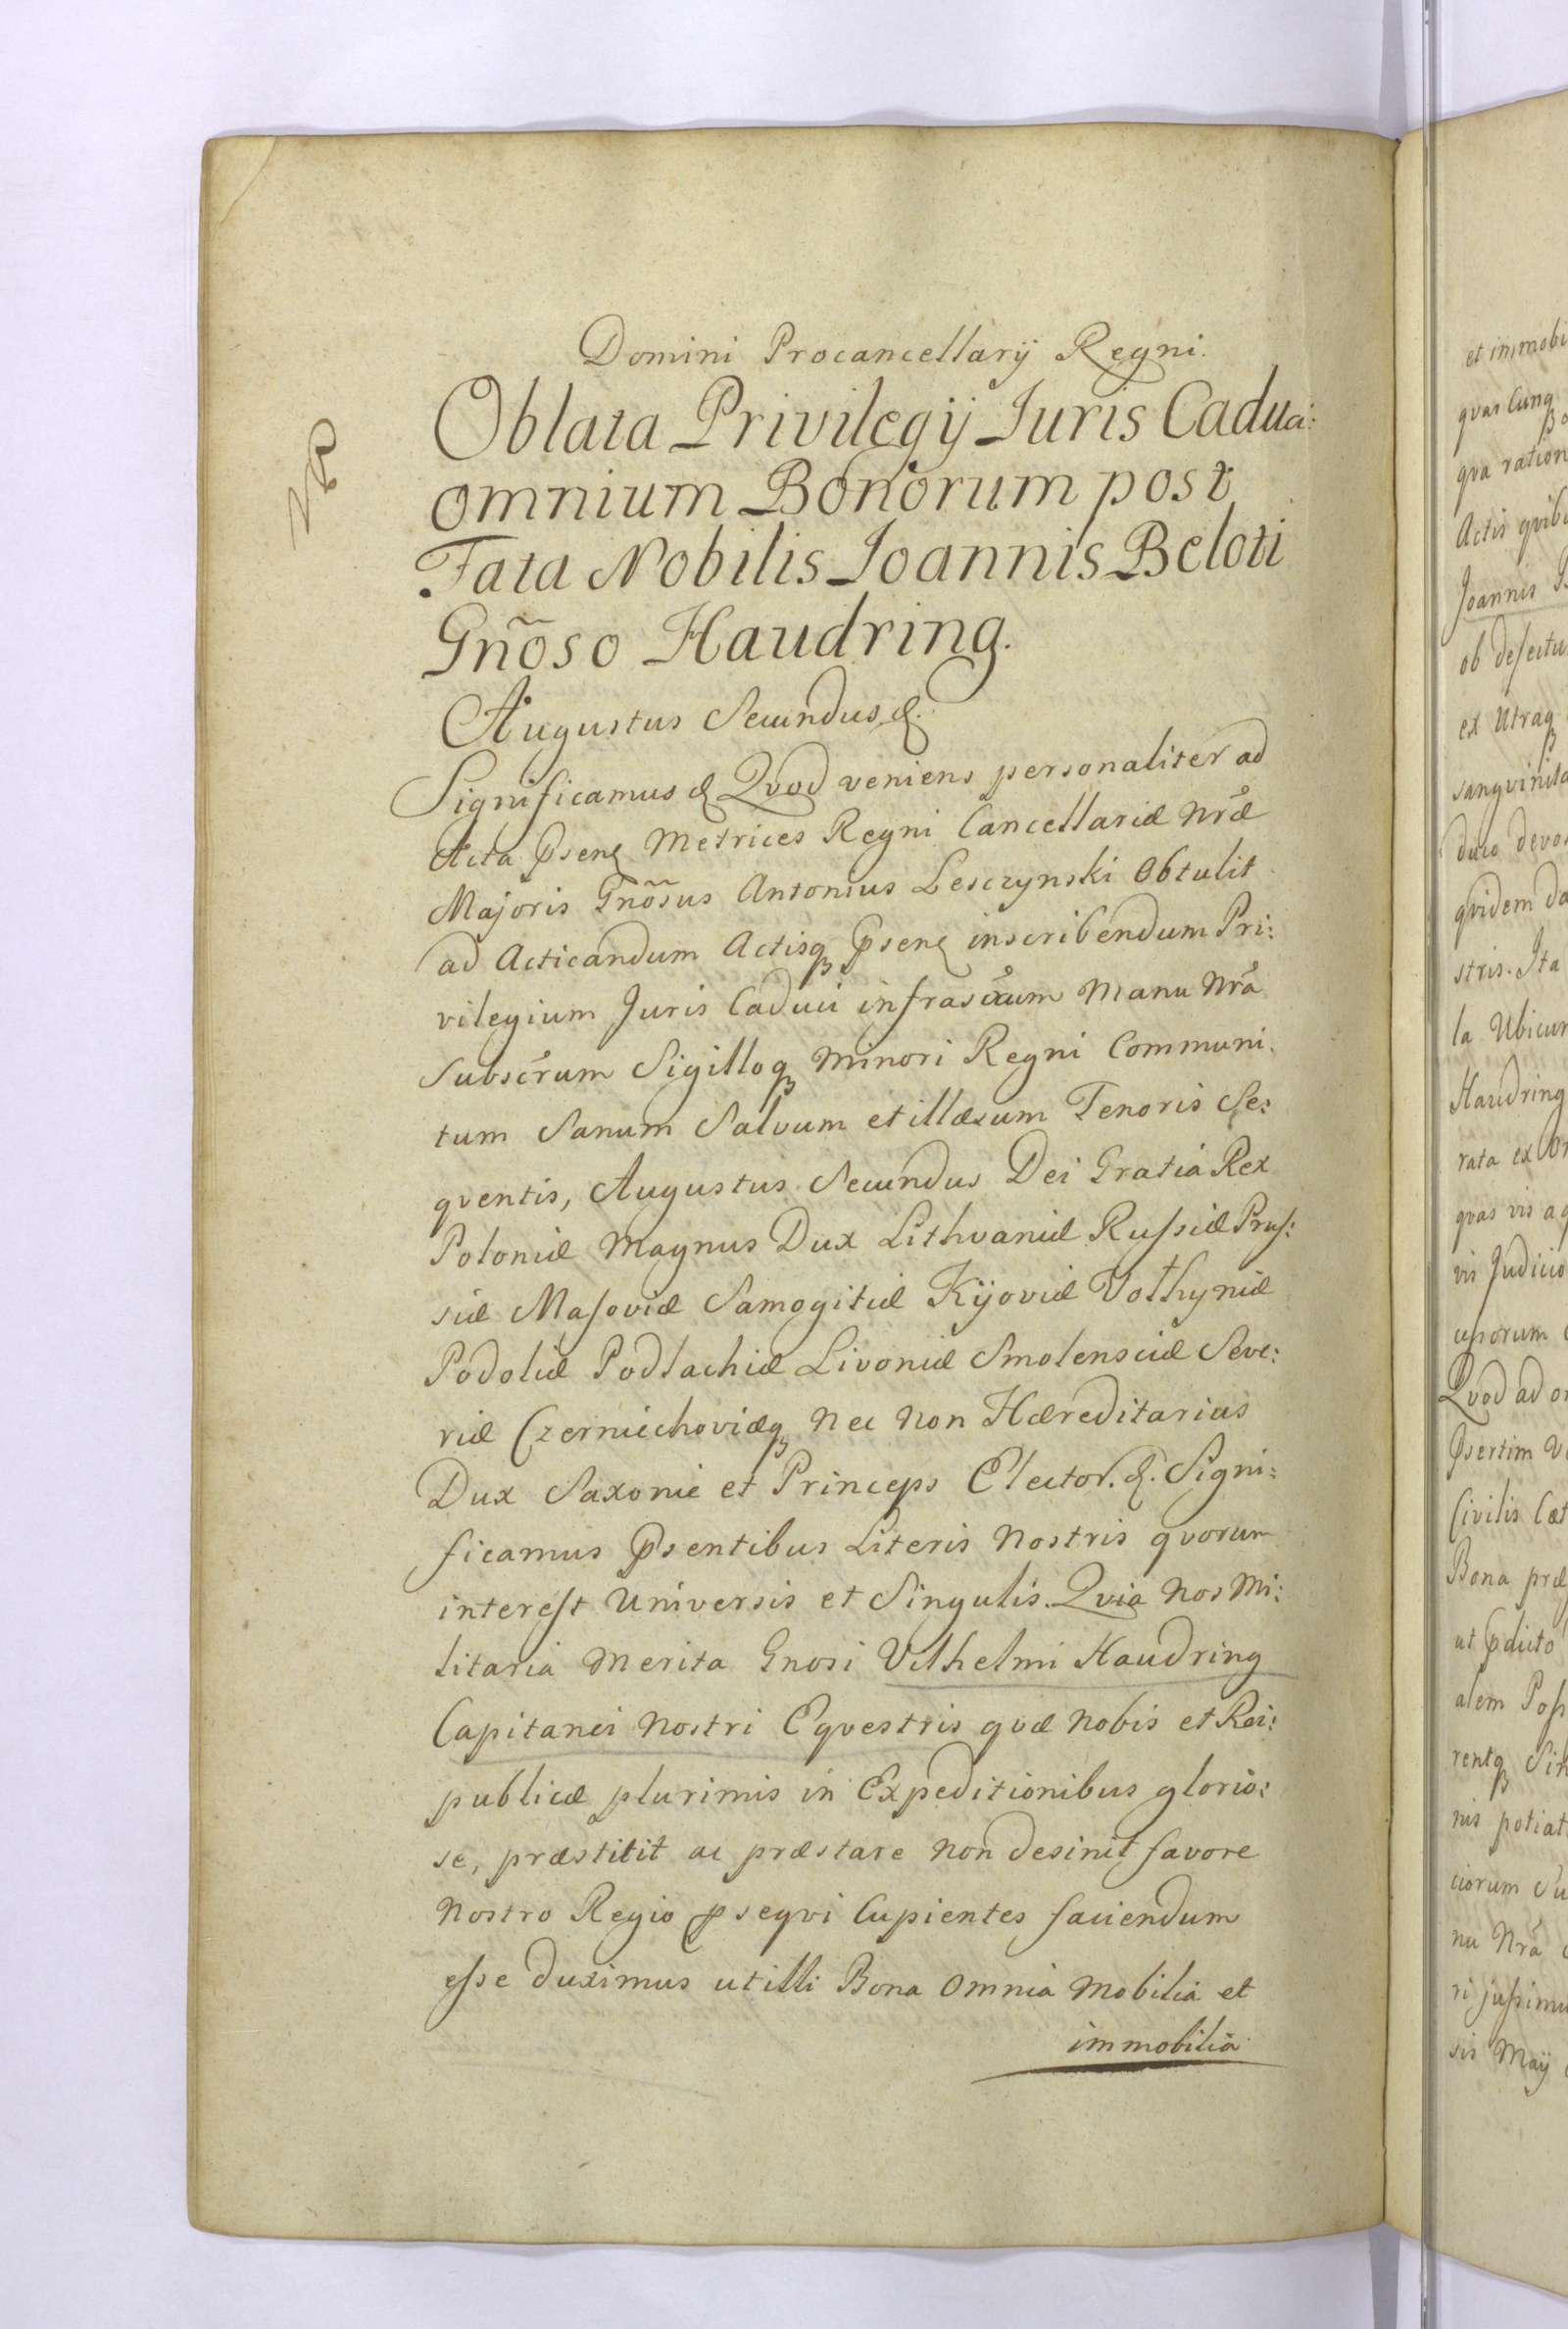 Domini Procancellarij Regni.
Oblata Privilegij Iuris Caduci:
omnium Bonorum post
Fata Nobilis Ioannis Beloti
Gñoso Haudring.
Augustus Secundus &.
Significamus & Qvod veniens personaliter ad
Acta Psen Metrices Regni Cancellariæ Nræ
Majoris Gnõsus Antonius Lesczynski Obtulit
ad Acticandum Actisq Psen inscribendum Pri:
vilegium Juris Caduci infrascrum Manu Nrã
Subscrum Sigilloq Minori Regni Communi.
tum Sanum Salvum et illæsum Tenoris Se:
qventis, Augustus Secundus Dei Gratia Rex
Poloniæ Magnus Dux Lithvaniæ Russiæ Prus:
siæ Masoviæ Samogitiæ Kijoviæ Volhyniæ
Podoliæ Podlachiæ Livoniæ Smolensciæ Seve:
riæ Czerniechoviæq Nec Non Hæreditarius
Dux Saxonie et Princeps Elector. &. Signi:
ficamus Psentibus Literis Nostris qvorum
interest Universis et Singulis. Qvia Nos Mi:
litaria Merita Gnosi Vilhelmi Haudring
Capitanei Nostri Eqvestris qvæ Nobis et Rei:
publicæ plurimis in Expeditionibus glorio:
se, præstitit ac præstare Non desinit favore
Nostro Regio pseqvi Cupientes faciendum
esse duximus ut illi Bona Omnia Mobilia et
immobilia
et immobi
qvas Cunq
qva ration
Actis qvib
Joannis
ob defectu
ex Utraq
sangvinita
duco devo
qvidem da
stris. Ita
la Ubicun
Haudring
rata ex
qvas vis
vis Judicio
Qvod ad
Psertim
Civilis Cæt
Bona præ
ut Pdicto
alem Poss
rentq
nis potiat
ciorum Su
nu Nrã
ri jussimu
sis Maij